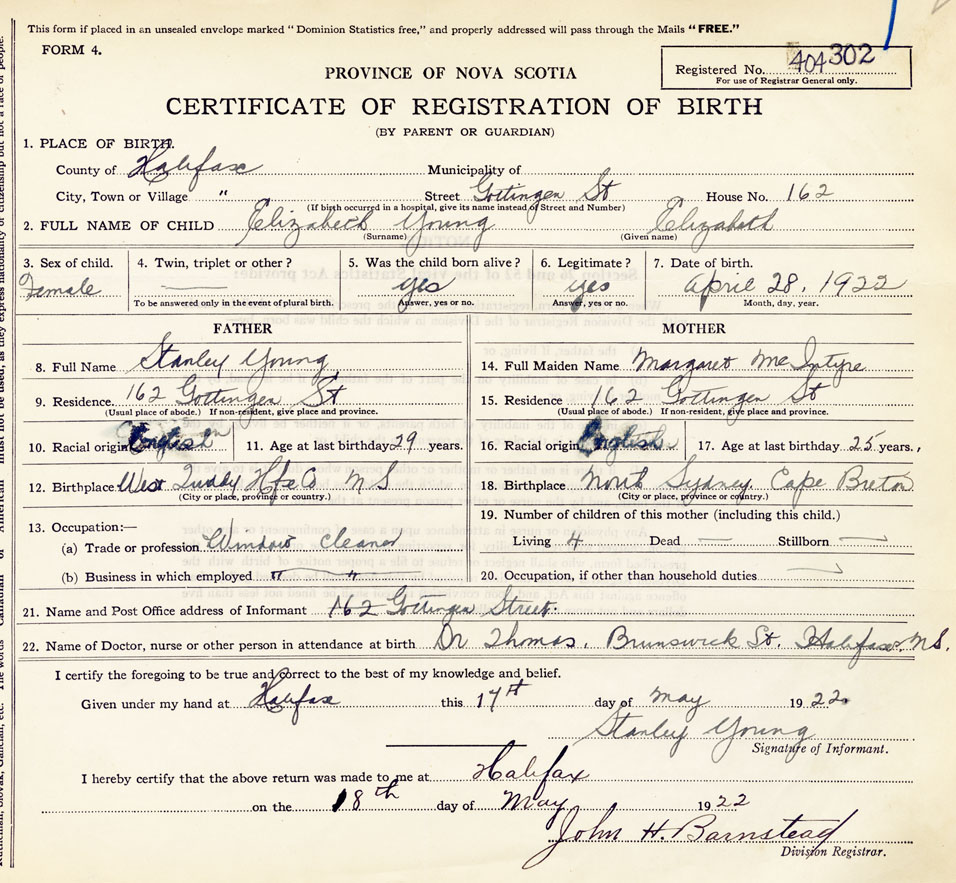 This form if placed in an unsealed envelope marked "Dominion Statistics free," and properly addressed will pass through the Mails "FREE."
FORM 4.
Registered No. 404302
For use of Registrar General only.
PROVINCE OF NOVA SCOTIA
CERTIFICATE OF REGISTRATION OF BIRTH
(BY PARENT OR GUARDIAN)
1. PLACE OF BIRTH.
County of Halifax Municipality of
City, Town or Village " Street Gottingen St House No. 162
(If birth occurred in a hospital, give its name instead of Street and Number)
2. FULL NAME OF CHILD Elizabeth Young Elizabeth
(Surname) (Given name)
3. Sex of child. 4. Twin, triplet or other? 5. Was the child born alive? 6. Legitimate? 7. Date of birth.
Female yes yes April 28, 1922
To be answered only in the event of plural birth. Answer, yes or no. Answer, yes or no. Month, day, year.
FATHER MOTHER
8. Full Name Stanley Young 14. Full Maiden Name Margaret McIntyre
9. Residence 162 Gottingen St 15. Residence 162 Gottingen St
(Usual place of abode.) If non-resident, give place and province. (Usual place of abode.) If non-resident, give place and province.
10. Racial origin English 11. Age at last birthday 29 years. 16. Racial origin English 17. Age at last birthday 25 years.
12. Birthplace West Hfx Co N S 18. Birthplace North Sydney Cape Breton
(City or place, province or country.) (City or place, province or country.)
13. Occupation:— 19. Number of children of this mother (including this child.)
(a) Trade or profession Window cleaner Living 4 Dead — Stillborn —
(b) Business in which employed " " 20. Occupation, if other than household duties
21. Name and Post Office address of Informant 162 Gottingen Street.
22. Name of Doctor, nurse or other person in attendance at birth Dr Thomas, Brunswick St. Halifax. N S.
I certify the foregoing to be true and correct to the best of my knowledge and belief.
Given under my hand at Halifax this 17th day of May 1922.
Stanley Young
Signature of Informant.
I hereby certify that the above return was made to me at Halifax
on the 18th day of May 1922
John H. Barnstead
Division Registrar.